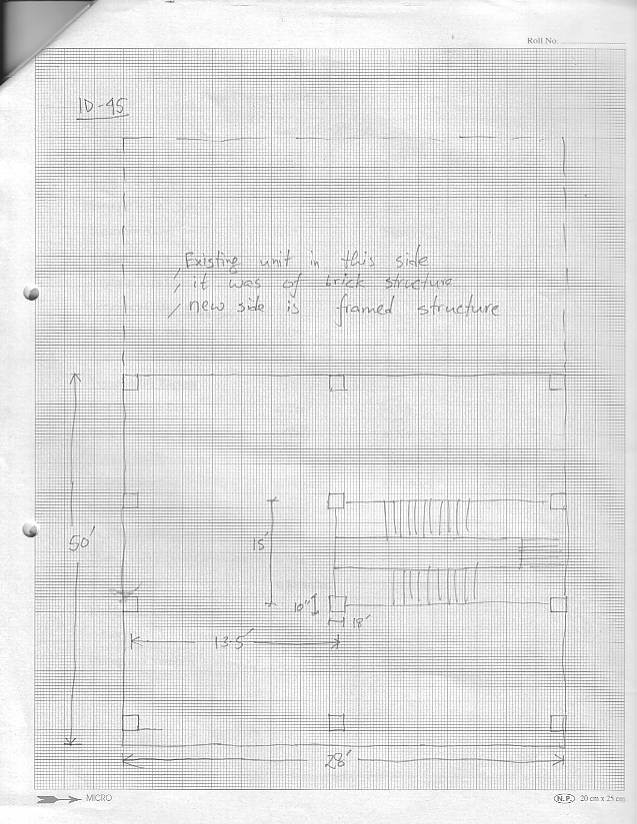 Roll No.
ID-45
Existing unit in this side
, it was of brick structure
, new side is framed structure
50'
15'
10"
18'
13.5'
28'
MICRO
N.P. 20 cm x 25 cm